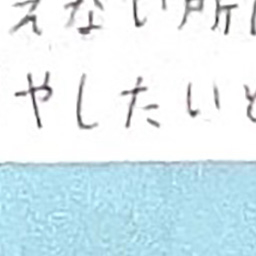 えない所
やしたいと